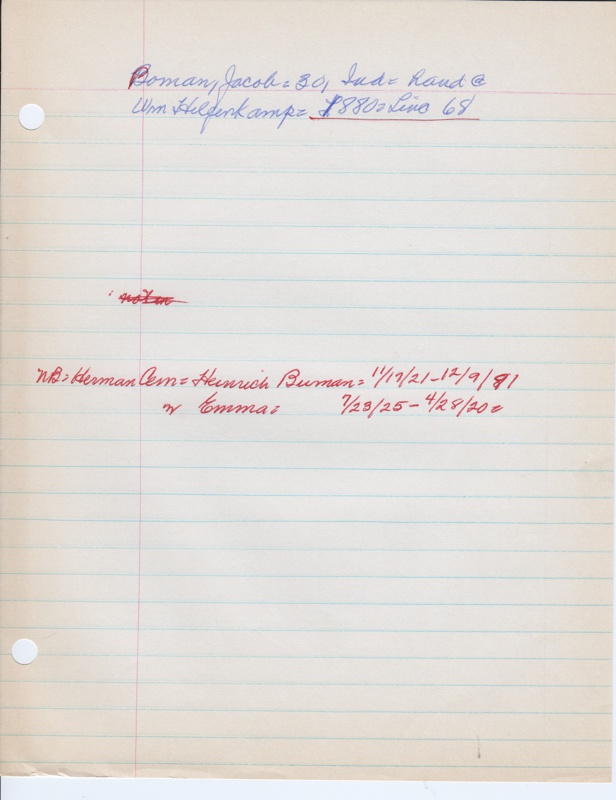 Boman, Jacob = 30, Ind = Rand @
Wm Helgenkamp = $880 = Line 68
not in
NB = Herman Cem = Heinrich Buman = 11/19/21 - 12/9/91
w Emma = 7/23/25 - 4/28/20 =